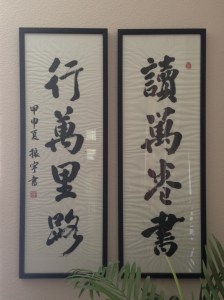 讀萬卷書
行萬里路
甲申夏